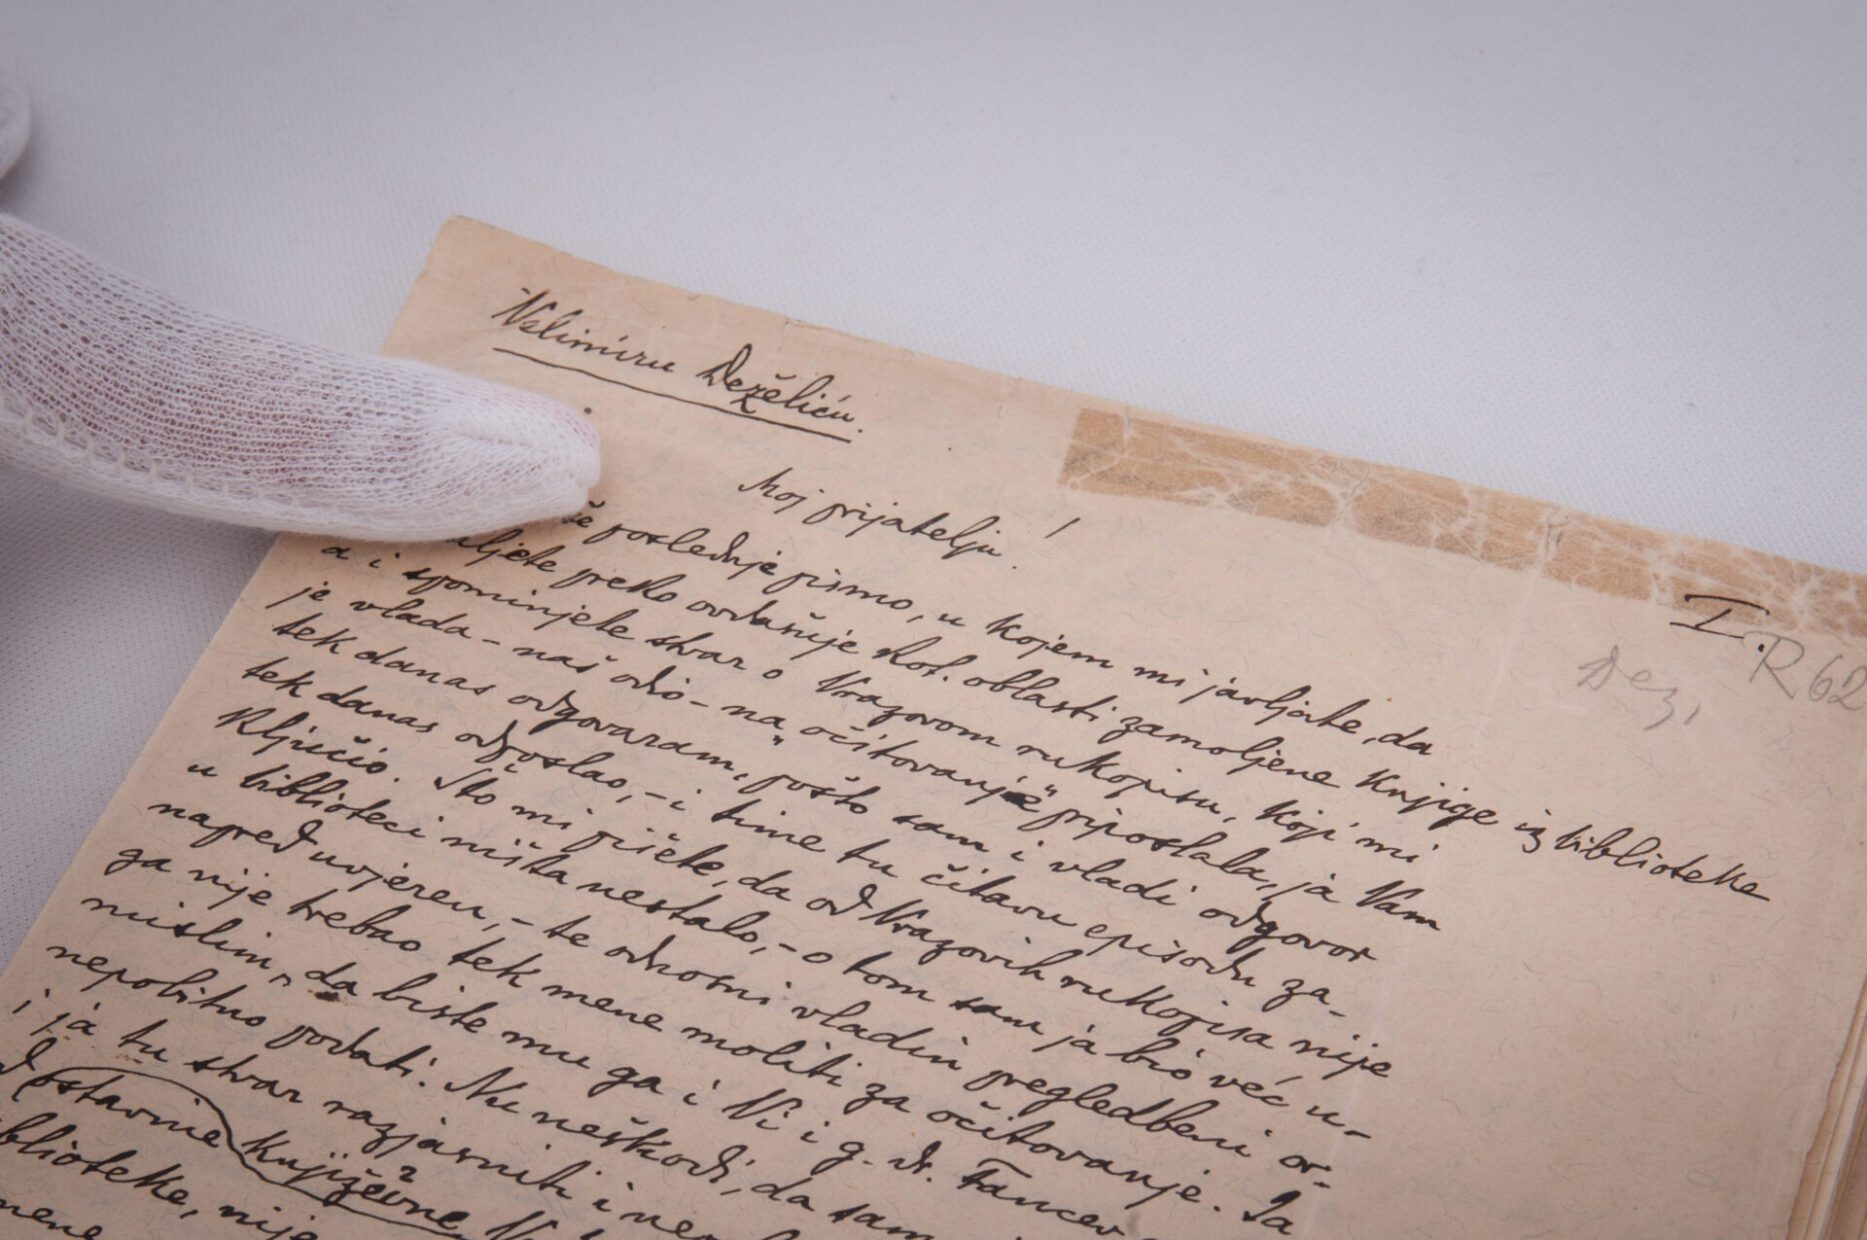 Velimiru Deželiću.
I.
R 62
Dež,
Moj prijatelju!
še poslednje pismo, u kojem mi javljate, da
aljete preko ovdašnje Kot. oblasti zamoljene knjige iz biblioteke
a i spominjete stvar o Vrazovom rukopisu, koji mi
je vlada – naš odio – na „očitovanje“ priposlala, ja Vam
tek danas odgovaram, pošto sam i vladi odgovor
tek danas odposlao, – i time tu čitavu episodu za-
ključio. Što mi pišete, da od Vrazovih rukopisa nije
u biblioteci ništa nestalo, – o tom sam ja bio već u-
napred uvjeren, – te odnosni vladin pregledbeni or-
ga nije trebao tek mene moliti za očitovanje. Ja
mislim, da biste mu ga i Vi i g. dr. Fancev
nepobitno podati. Nu neškodi, da sam
i ja tu stvar razjasnili i
ostavine književne
blioteke, nije
mene